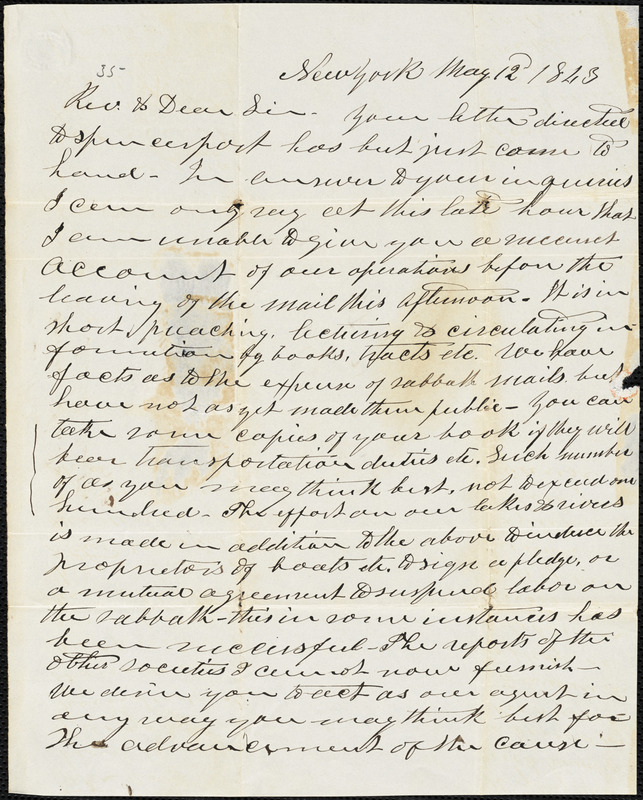 35-
New York May 12 1843
Rev. & Dear Sir - Your letter directed
to Spencerport has but just come to
hand - In answer to your inquiries
I can only say at this late hour that
I am unable to give you a succinct
account of our operations before the
leaving of the mail this afternoon - It is in
short, preaching, lecturing & circulating in
formation by books, tracts etc. We have
facts as to the expense of sabbath mails but
have not as yet made them public - You can
take some copies of your book if they will
bear transportation duties etc. Such number
of as you may think best, not to exceed one
hundred - The effort on our lakes & rivers
is made in addition to the above to induce the
proprietors of boats etc. to sign a pledge, or
a mutual agreement to suspend labor on
the sabbath - this in some instances has
been successful - The reports of the
other societies I cannot now furnish -
We desire you to act as our agent in
any way you may think best for
the advancement of the cause -